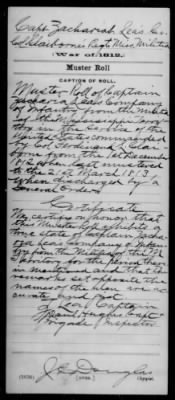 Capt. Zachariah Leas Co.
Col. Claibornes Regt Miss. Militia
(War of 1812.)
Muster Roll
CAPTION OF ROLL.
Muster Roll of Captain
Zachariah Leas Company
of Infantry from the Militia
of the Mississippi Terry
now in the Service of the
United States commanded
by Col Ferdinand L Clai
borne from the
1812 when last mustered
to the 2 of March 1813
when discharged by
General Orders
Certificate
We certify on honor that
this Muster Roll exhibits a
true state of Captain Zach
Leas Company of Infan
try from the Militia of the
for the period there
in mentioned and that the
remarks set opposite the
names of the men are ac
curate and just
Z Lea Captain
Danl Hughes Capt
Brigade Inspector
J E Douglas
Copyist.